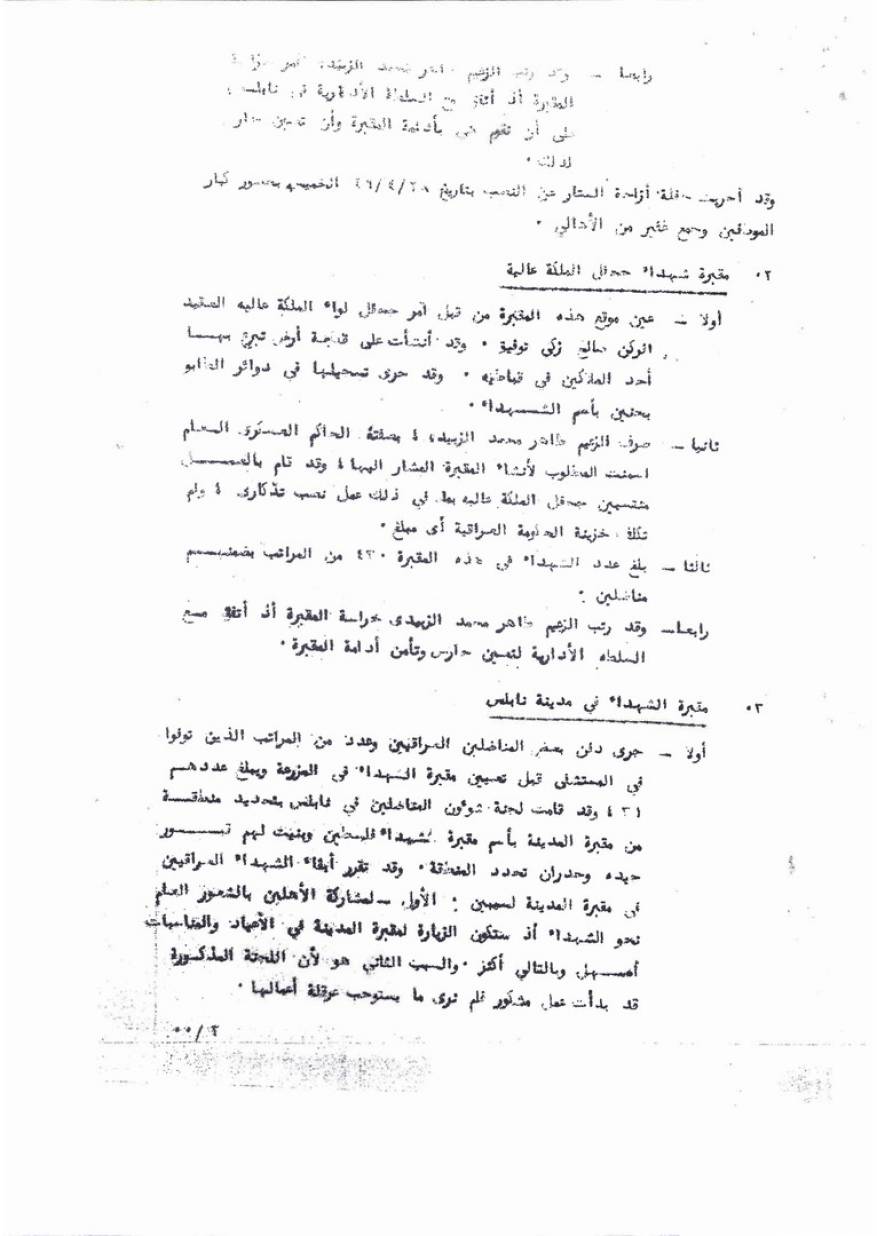 رابعا ــ وقد رتب الزعيم طاهر محمد الزبيدى أمر حراسة
المقبرة أذ أتفق مع السلطة الأدارية في نابلس ،
على أن تقوم هي بأدامة المقبرة وأن تعين حارس
لذلك ٠
وقد أجريت حفلة أزاحة الستار عن النصب بتاريخ الخميس بحضور كبار
الموظفين وجمع غفير من الأهالي ٠
٠٢ مقبرة شهداء جحفل الملكة عالية
أولا ــ عين موقع هذه المقبرة من قبل آمر جحفل لواء الملكة عاليه العقيد
الركن صالح زكي توفيق ٠ وقد أنشأت على قطعة أرض تبرع بهــا
أحد الملاكين في قباطيه ٠ وقد جرى تسجيلها في دوائر الطابو
بجنين بأسم الشــهداء ٠
ثانيا ــ صرف الزعيم طاهر محمد الزبيدى ، بصفته الحاكم العسكرى العــام
اسمنت المطلوب لأنشاء المقبرة المشار اليها ، وقد قام بالعمــــل
منتسبين جحفل الملكة عاليه بما في ذلك عمل نصب تذكارى ، ولم
تكلف خزينة الحكومة العراقية أى مبلغ ٠
ثالثا ــ بلغ عدد الشهداء في هذه المقبرة من المراتب بضمنهــم
مناضلين ؛
رابعــاــ وقد رتب الزعيم طاهر محمد الزبيدى حراسة المقبرة أذ أتفق مــع
السلطه الأدارية لتعيين حارس وتأمن أدامة المقبرة ٠
٠٣ مقبرة الشهداء في مدينة نابلس
أولا ــ جرى دفن بعض المناضلين العراقيين وعدد من المراتب الذين توفوا
في المستشفى قبل تعيين مقبرة الشهداء في المزرعة ويبلغ عددهــم
٣١ ، وقد قامت لجنة شوؤن المناضلين في نابلس بتحديد منطقــــة
من مقبرة المدينة بأسم مقبرة شهداء فلسطين وبنيت لهم قبـــــور
جيده وجدران تحدد المنطقة ٠ وقد تقرر أبقاء الشهداء العراقيين
في مقبرة المدينة لسببين ؛ الأول ــ لمشاركة الأهلين بالشعور العام
نحو الشهداء أذ ستكون الزيارة لمقبرة المدينة في الأعياد والمناسبات
أســهل وبالتالي أكثر ٠ والسبب الثاني هو لأن اللجنة المذكــورة
قد بدأت عمل مشكور فلم نرى ما يستوجب عرقلة أعمالها ٠
٣/٠٠